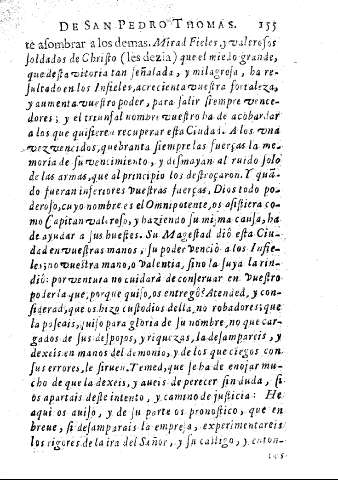 DE SAN PEDRO THOMAS. 155
te asombrar a los demas. Mirad Fieles, y valerosos
soldados de Christo (les dezia) que el miedo grande,
que desta vitoria tan señalada, y milagrosa, ha re-
sultado en los Infieles, acrecienta vuestra fortaleza,
y aumenta vuestro poder, para salir siempre vence-
dores; y el triunfal nombre vuestro ha de acobardar
a los que quisieren recuperar esta Ciudad. A los vna
vez vencidos, quebranta siempre las fuerças la me-
moria de su vencimiento, y desmayan al ruido solo
de las armas, que al principio los destroçaron. Y quã-
do fueran inferiores vuestras fuerças, Dios todo po-
deroso, cuyo nombre es el Omnipotente, os asistiera co-
mo Capitan valeroso, y haziendo su misma causa, ha
de ayudar a sus huestes. Su Magestad diò esta Ciu-
dad en vuestras manos; su poder venciò a los Infie-
les; no vuestra mano, o Valentia, sino la suya la rin-
diò: por ventura no cuidarà de conseruar en vuestro
poder la que, porque quiso, os entregò? Atended, y con-
siderad, que os hizo custodios della, no robadores; que
la poseais, quiso para gloria de su nombre, no que car-
gados de sus despojos, y riquezas, la desampareis, y
dexeis en manos del demonio, y de los que ciegos con
sus errores, le siruen. Temed, que se ha de enojar mu-
cho de que la dexeis, y aueis de perecer sin duda, si
os apartais deste intento, y camino de justicia: He
aqui os auiso, y de su parte os pronostico, que en
breue, si desamparais la empresa, experimentareis
los rigores de la ira del Señor, y su castigo, y enton-